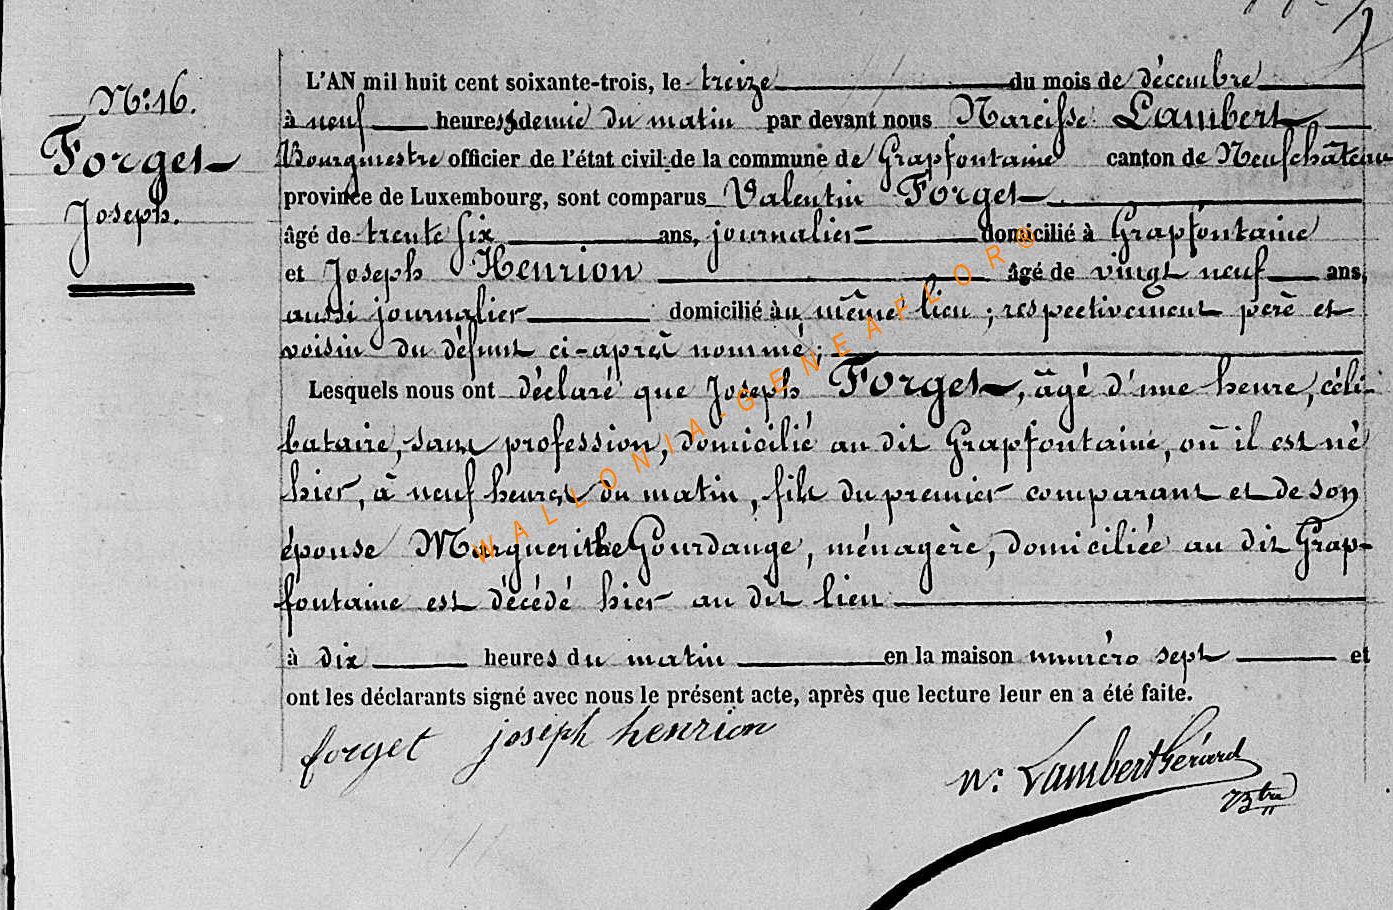 N°: 16.
Forget
Joseph.
L'AN mil huit cent soixante-trois, le treize du mois de décembre
à neuf heures & demie du matin par devant nous Narcisse Lambert
Bourgmestre officier de l'état civil de la commune de Grapfontaine canton de Neufchâteau
province de Luxembourg, sont comparus Valentin Forget
âgé de trente six ans, journalier domicilié à Grapfontaine
et Joseph Henrion âgé de vingt neuf ans,
aussi journalier domicilié au même lieu ; respectivement père et
voisin du défunt ci-après nommé ;
Lesquels nous ont déclaré que Joseph Forget, âgé d'une heure, céli-
bataire, sans profession, domicilié au dit Grapfontaine, où il est né
hier, à neuf heures du matin, fils du premier comparant et de son
épouse Marguerithe Gourdange, ménagère, domiciliée au dit Grap-
fontaine est décédé hier au dit lieu
à dix heures du matin en la maison numéro sept et
ont les déclarants signé avec nous le présent acte, après que lecture leur en a été faite.
forget joseph henrion
N: Lambert Gérard
Bstre
WALLONIA-GENEAFLOR®